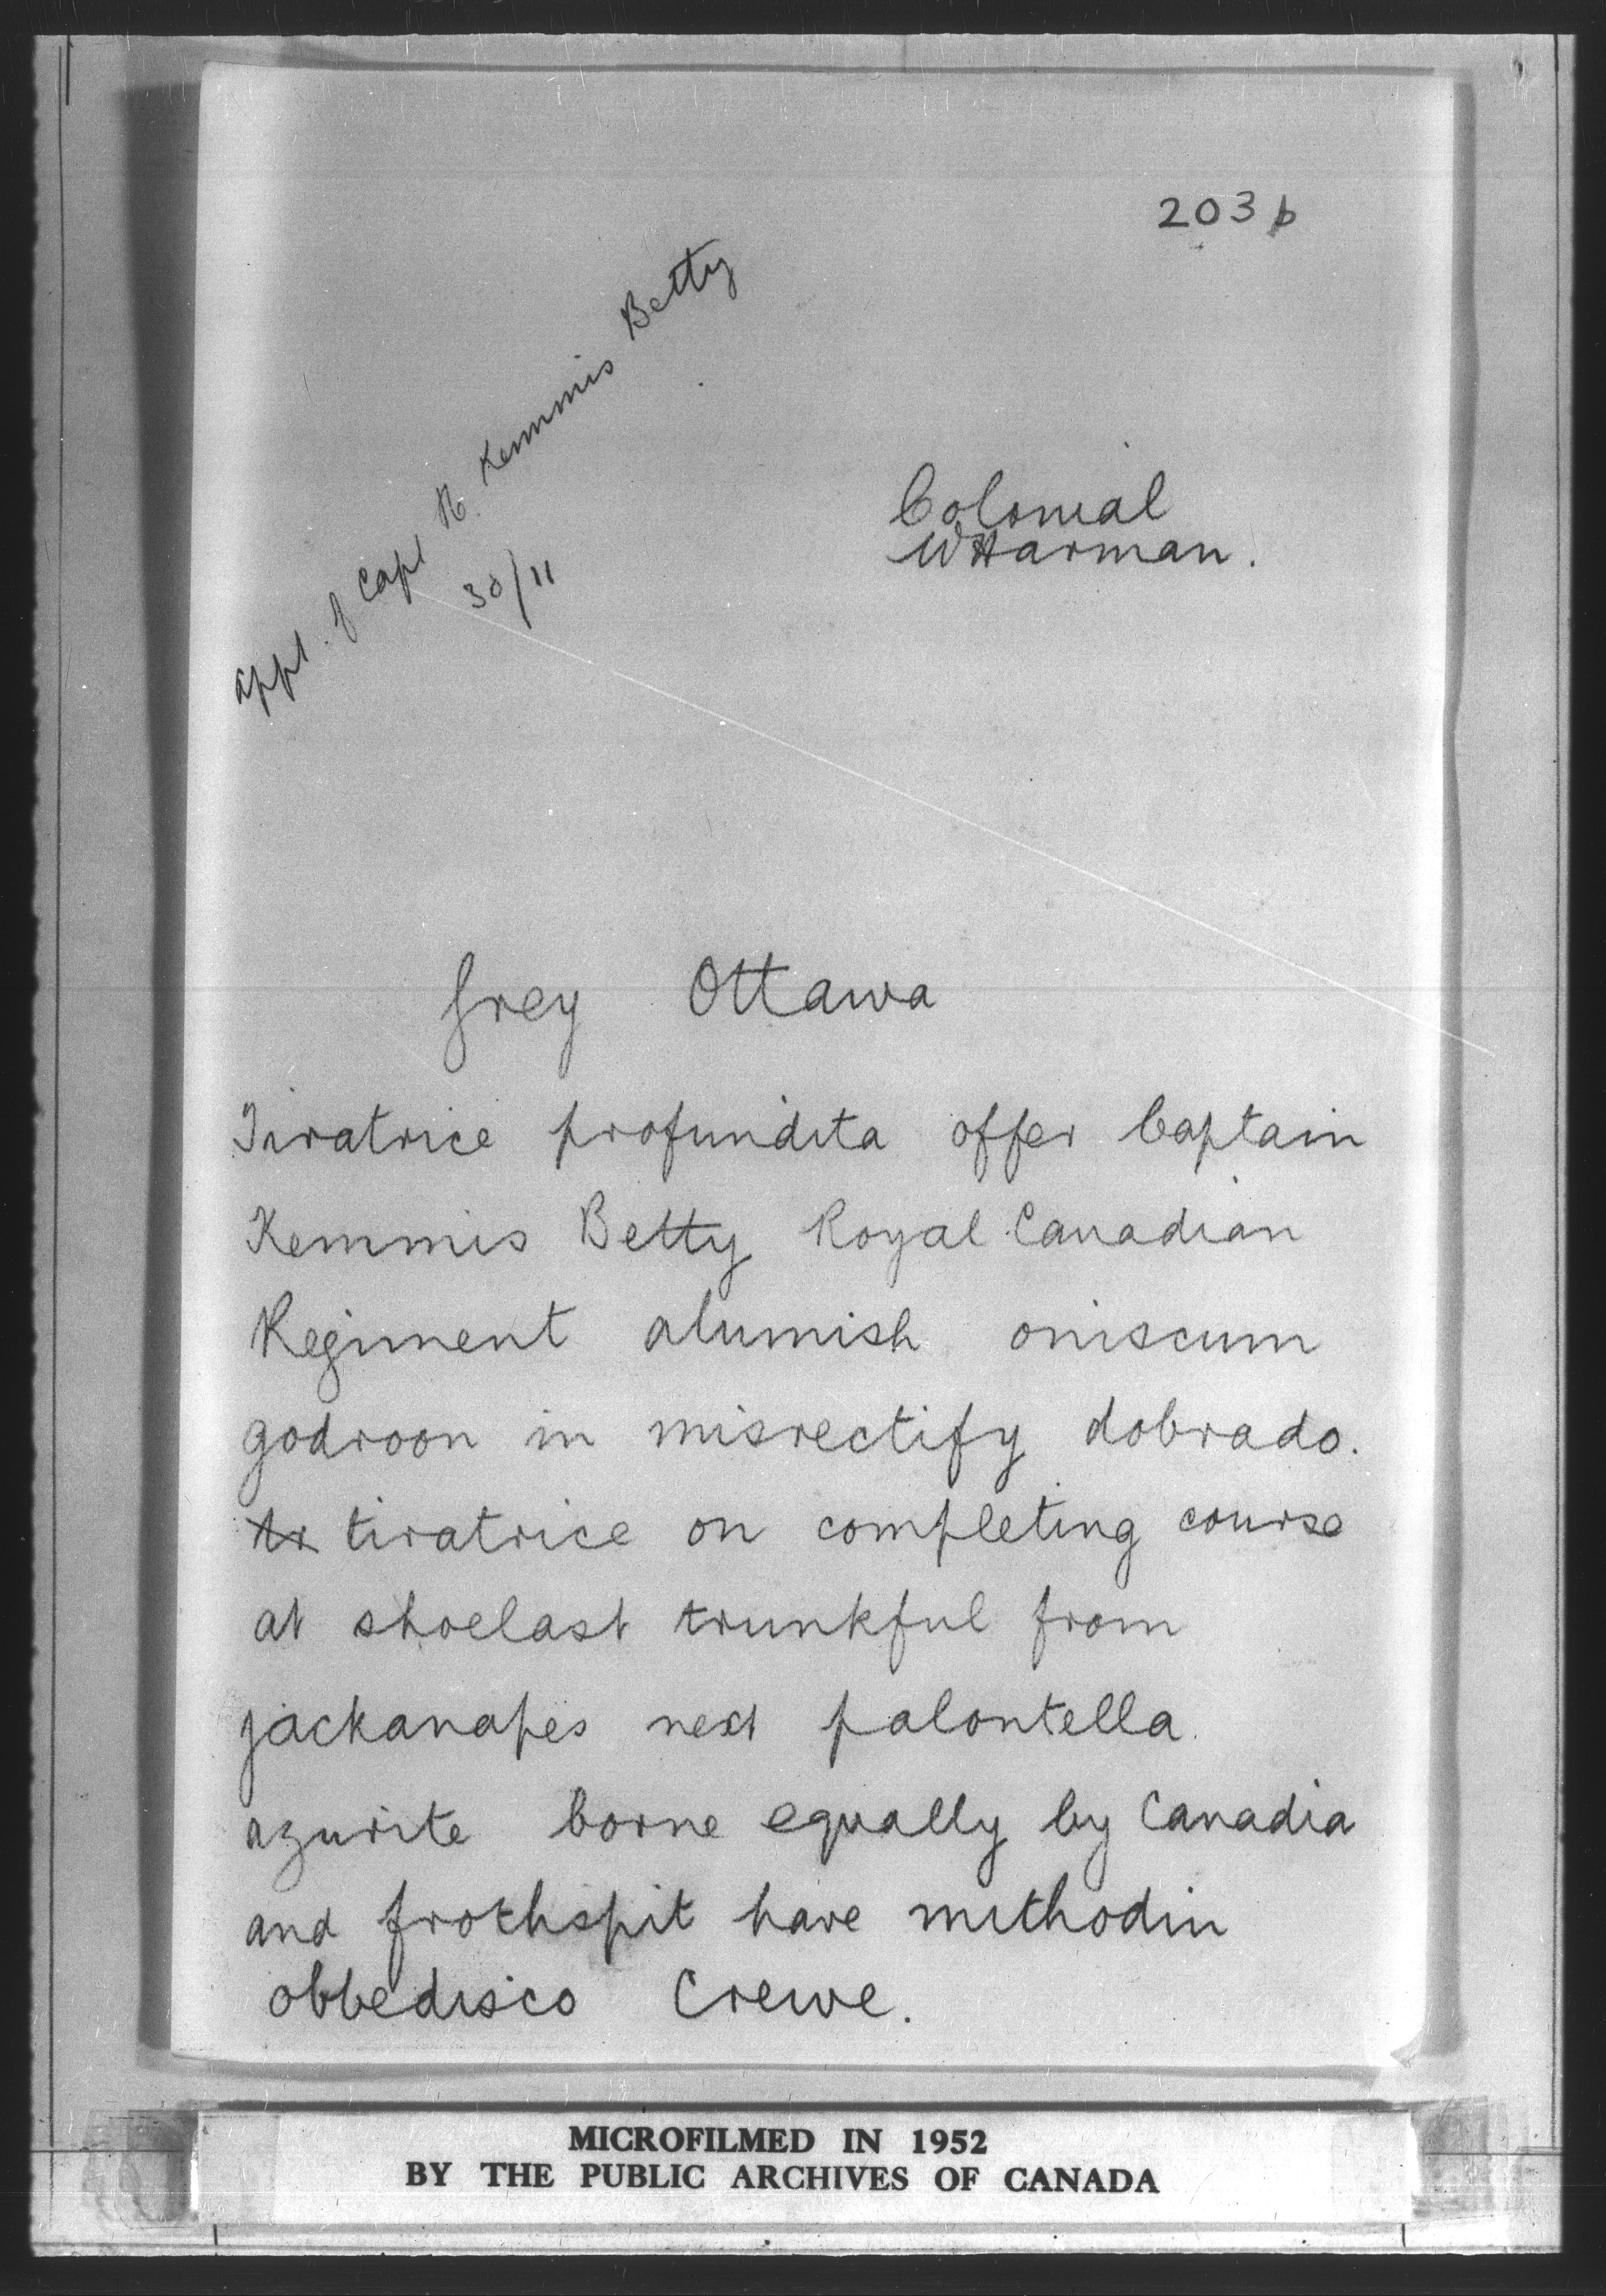 203 b
appl. of Capt R. Kemmis Betty
30/11
Colonial
WHarman.
Grey Ottawa
Tiratrice profundita offer Captain
Kemmis Betty Royal Canadian
Regiment alumish oniscum
godroon in misrectify dobrado.
tr tiratrice on completing course
at shoelast trunkful from
jackanapes next palontella.
azurite borne equally by Canadia
and frothspit have mithodin
obbedisco Crewe.
MICROFILMED IN 1952
BY THE PUBLIC ARCHIVES OF CANADA